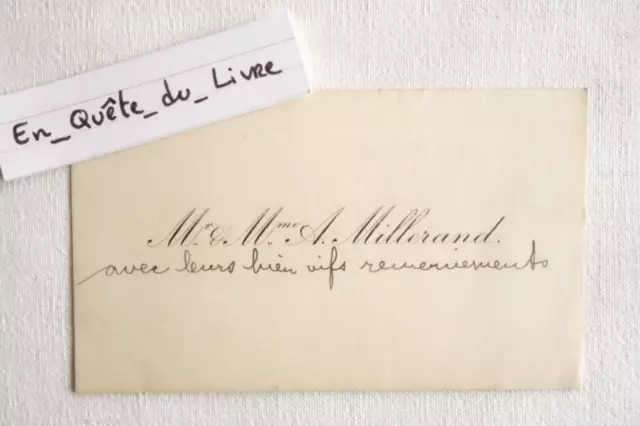 En_Quête_du_Livre
Mr. & Mme A. Millerand.
avec leurs bien vifs remerciements